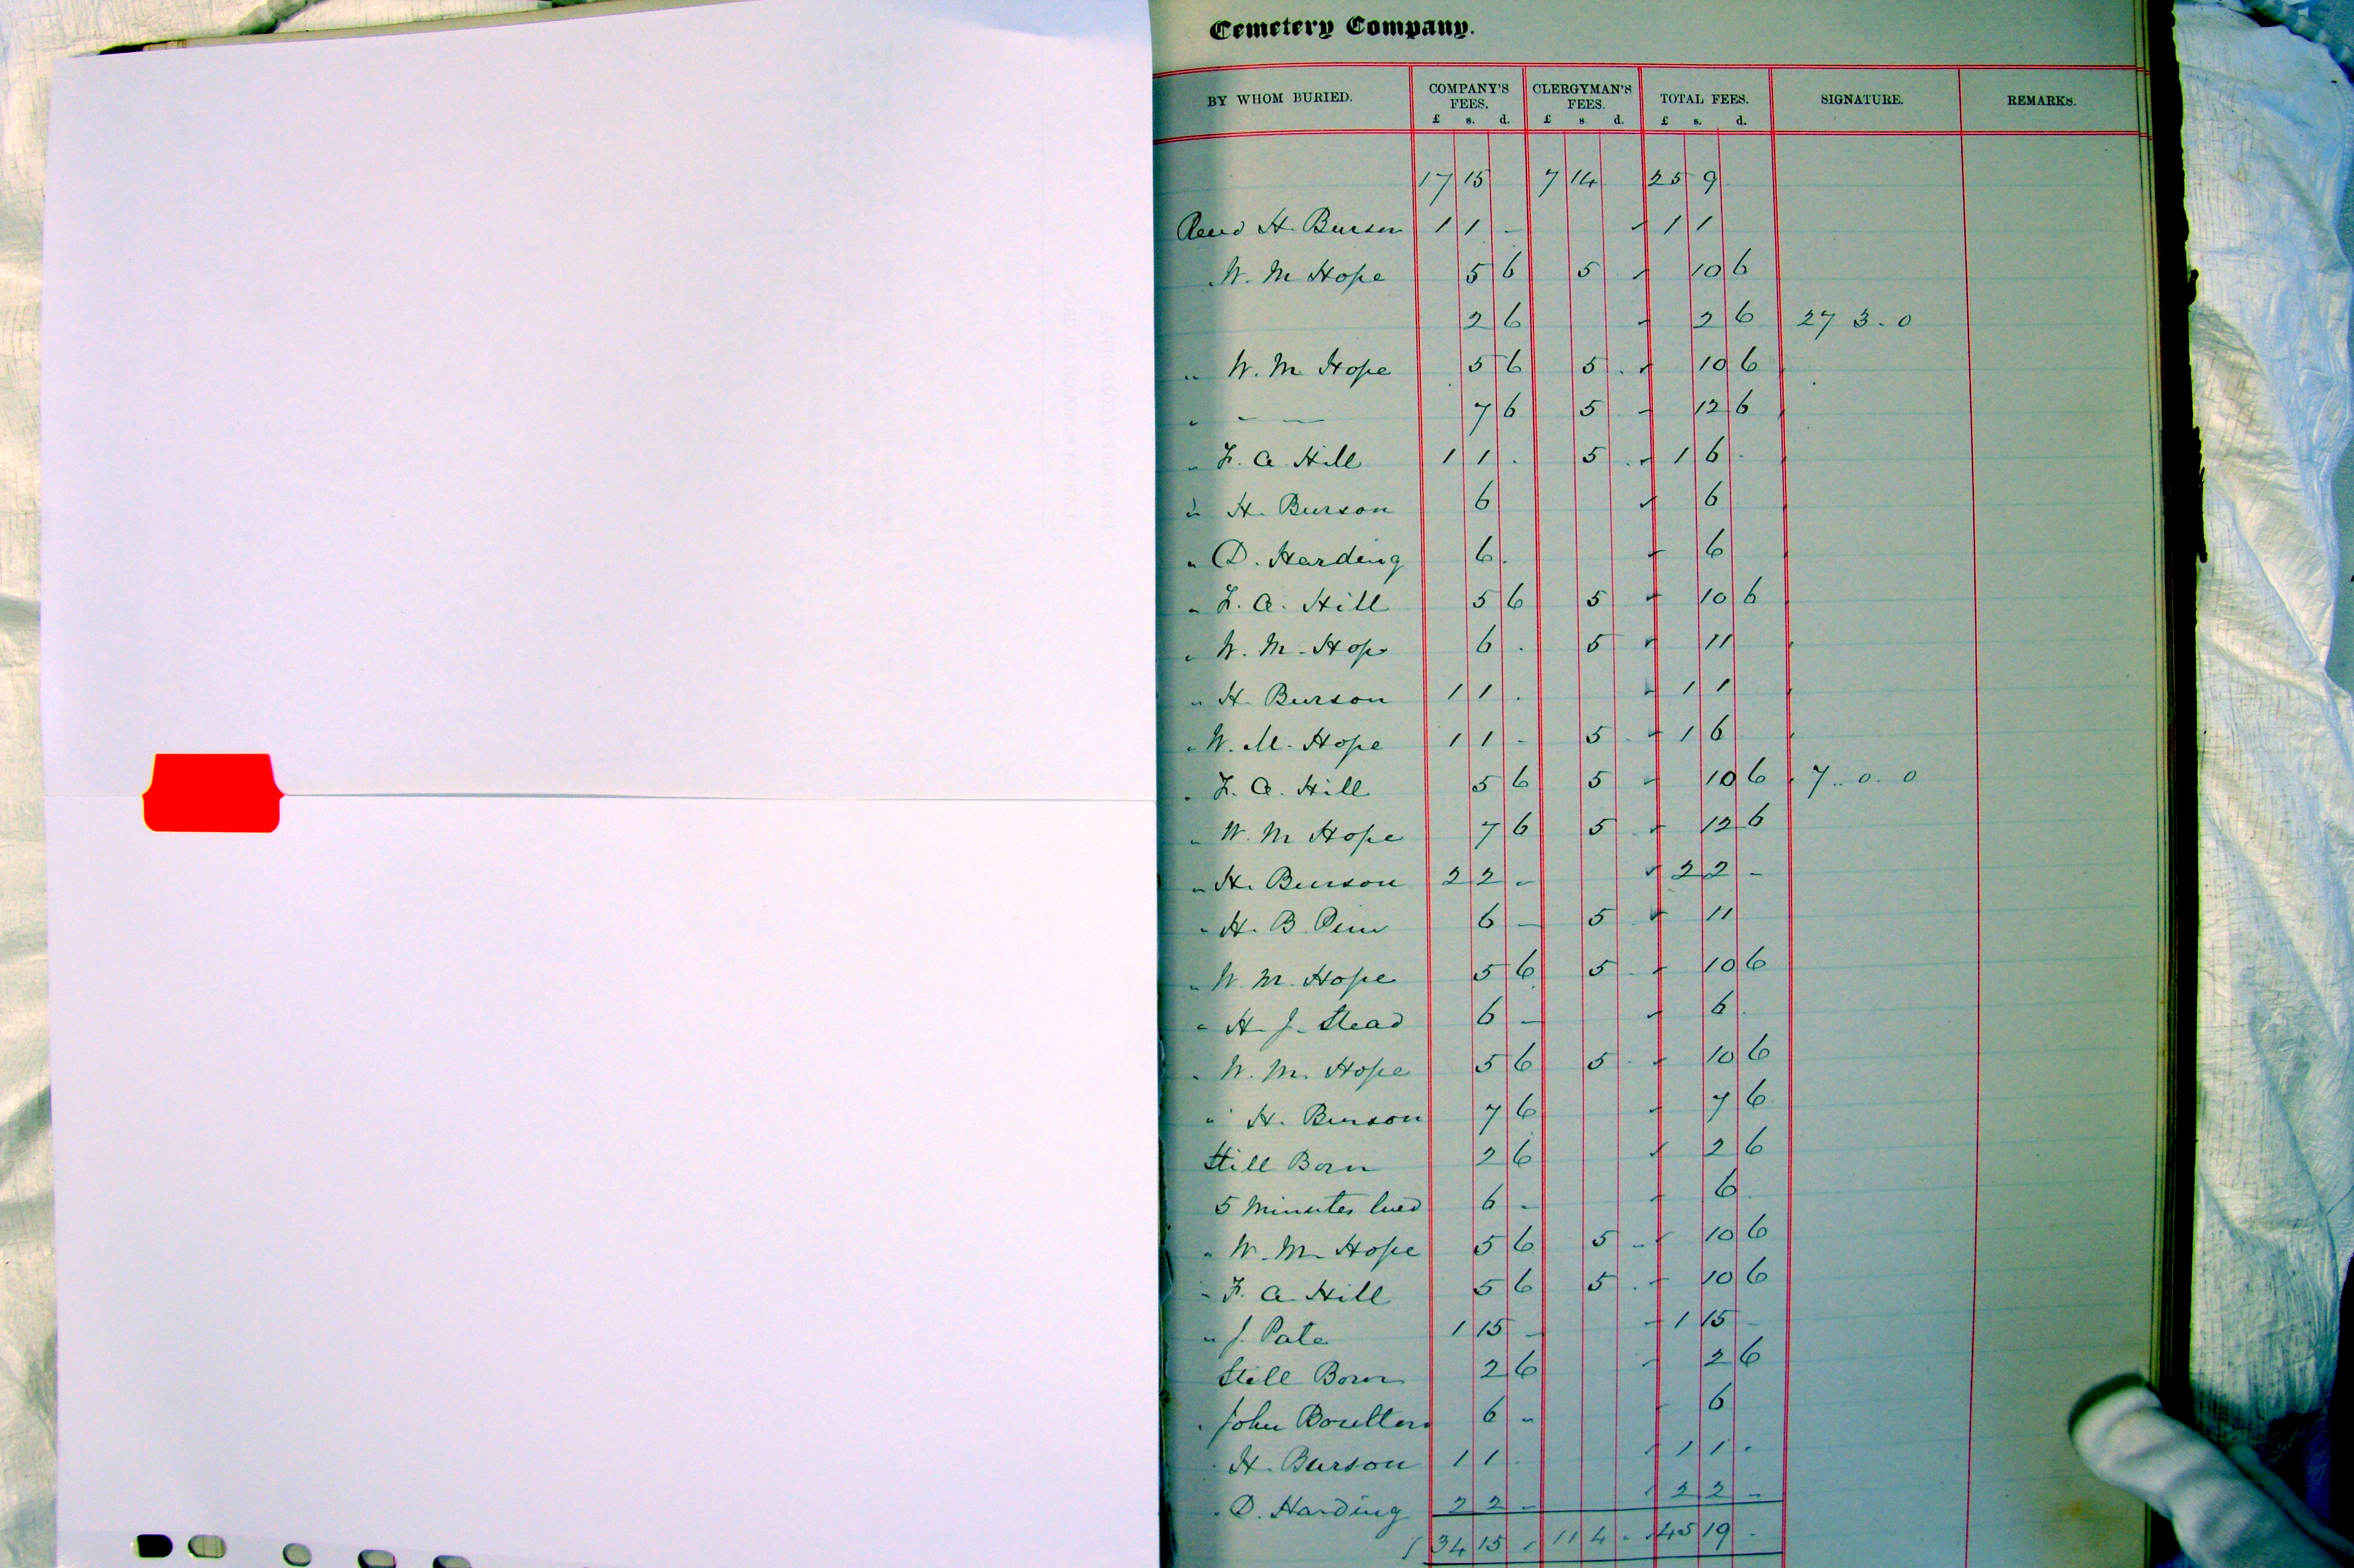 Cemetery Company.
BY WHOM BURIED. COMPANY'S FEES. CLERGYMAN'S FEES. TOTAL FEES. SIGNATURE. REMARKS.
£ s. d. £ s. d. £ s. d.
17 15 7 14 25 9
Revd H. Burson 1 1 - 1 1
W. M Hope 5 6 5 10 6
2 6 2 6 27 3. 0
" W. M Hope 5 6 5 10 6
" - — 7 6 5 12 6
" F. A Hill 1 1 . 5 1 6
" H. Burson 6 6
" D. Harding 6 . 6
" F. A. Hill 5 6 5 10 6
" W. M. Hope 6 . 5 11
" H Burson 1 1 . 1 1
" W. M. Hope 1 1 - 5 1 6
" F. A. Hill 5 6 5 10 6 7. 0. 0
" W. M Hope 7 6 5 12 6
" H. Burson 2 2 - 2 2 -
" H. B 6 - 5 11
" W. M. Hope 5 6 5 10 6
" H J. Stead 6 - 6
" W. M. Hope 5 6 5 10 6
" H. Burson 7 6 7 6
Still Born 2 6 2 6
5 Minutes lived 6 - 6
" W. M. Hope 5 6 5 10 6
" F. A Hill 5 6 5 10 6
" J. Pate 1 15 - 1 15 -
Still Born 2 6 2 6
" John Boulton 6 - 6
H. Burson 1 1 . 1 1 .
" D. Harding 2 2 - 2 2 -
34 15 11 4 45 19